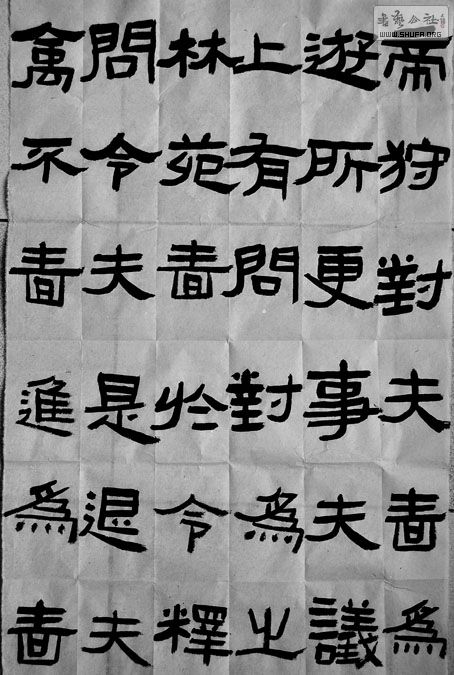 帝遊上林問禽
狩所有苑令不
對更問嗇夫嗇
夫事對於是進
嗇夫為令退為
嗇夫釋之議為
書藝公社
WWW.SHUFA.ORG